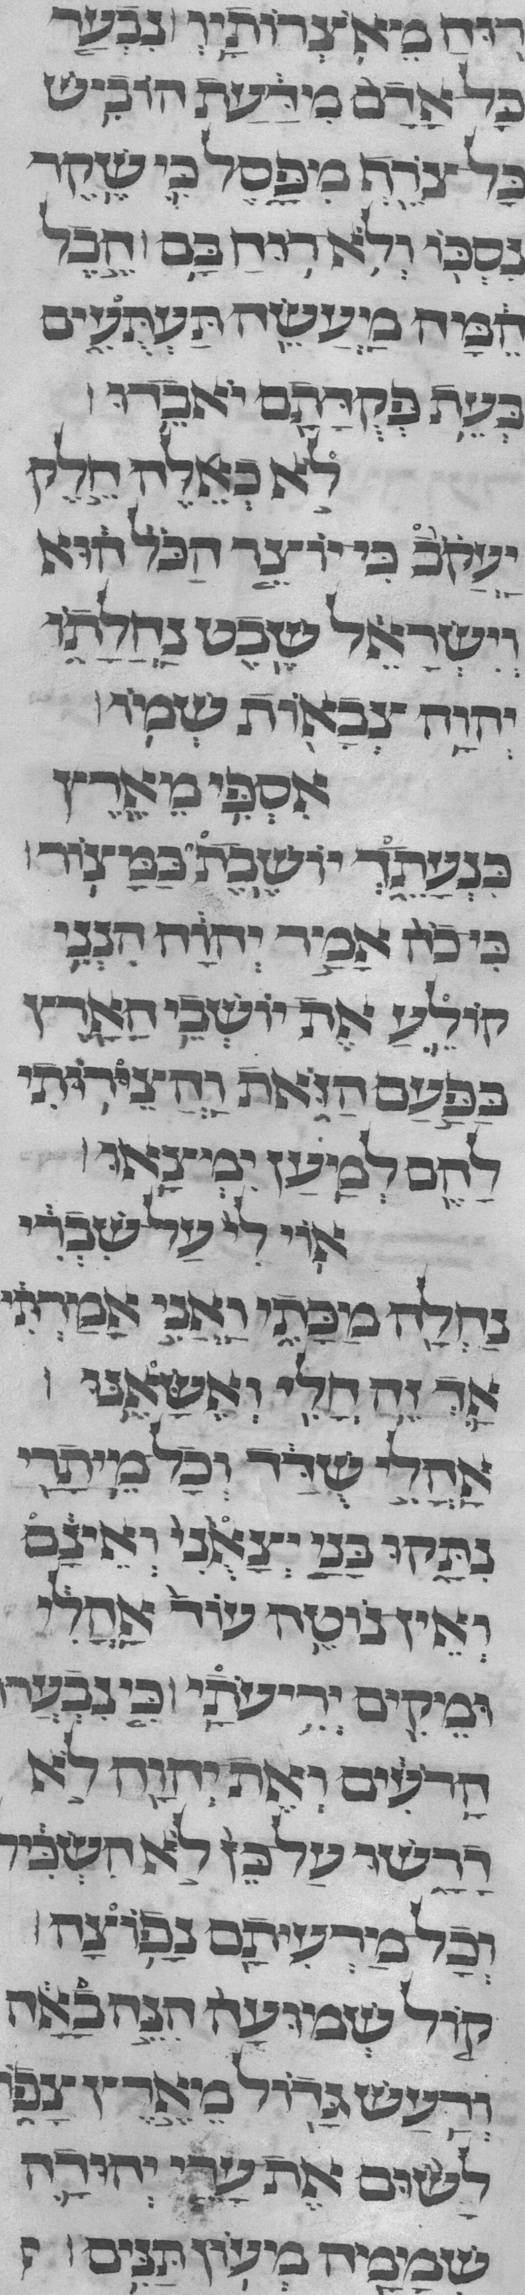 רוּחַ מֵאֹצְרוֹתָיו׃ נִבְעַר
כָּל־אָדָם מִדַּעַת הוֹבִישׁ
כָּל־צוֹרֵף מִפָּסֶל כִּי שֶׁקֶר
נִסְכּוֹ וְלֹא־רוּחַ בָּם׃ הֶבֶל
הֵמָּה מַעֲשֵׂה תַּעְתֻּעִים
בְּעֵת פְּקֻדָּתָם יֹאבֵדוּ׃
לֹא־כְאֵלֶּה חֵלֶק
יַעֲקֹב כִּי־יוֹצֵר הַכֹּל הוּא
וְיִשְׂרָאֵל שֵׁבֶט נַחֲלָתוֹ
יְהוָה צְבָאוֹת שְׁמוֹ׃
אִסְפִּי מֵאֶרֶץ
כִּנְעָתֵךְ יוֹשֶׁבֶת בַּמָּצוֹר׃
כִּי־כֹה אָמַר יְהוָה הִנְנִי
קוֹלֵעַ אֶת־יוֹשְׁבֵי הָאָרֶץ
בַּפַּעַם הַזֹּאת וַהֲצֵרוֹתִי
לָהֶם לְמַעַן יִמְצָאוּ׃
אוֹי לִי עַל־שִׁבְרִי
נַחְלָה מַכָּתִי וַאֲנִי אָמַרְתִּי
אַךְ זֶה חֳלִי וְאֶשָּׂאֶנּוּ׃
אָהֳלִי שֻׁדָּד וְכָל־מֵיתָרַי
נִתָּקוּ בָּנַי יְצָאֻנִי וְאֵינָם
וְאֵין נוֹטֶה עוֹד אָהֳלִי
וּמֵקִים יְרִיעוֹתָי׃ כִּי נִבְעֲרוּ
הָרֹעִים וְאֶת־יְהוָה לֹא
דָרָשׁוּ עַל־כֵּן לֹא הִשְׂכִּילוּ
וְכָל־מַרְעִיתָם נָפוֹצָה׃
קוֹל שְׁמוּעָה הִנֵּה בָאָה
וְרַעַשׁ גָּדוֹל מֵאֶרֶץ צָפוֹן
לָשׂוּם אֶת־עָרֵי יְהוּדָה
שְׁמָמָה מְעוֹן תַּנִּים׃